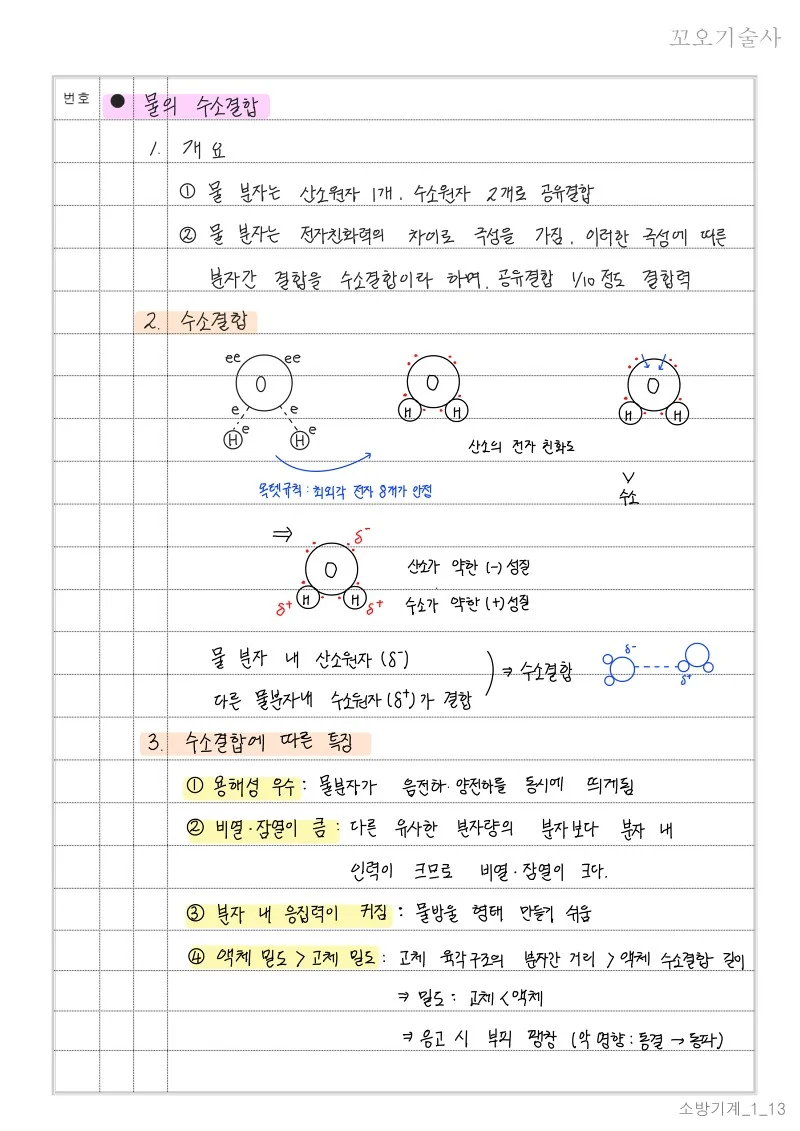 꼬오기술사
번호 ● 물의 수소결합
1. 개요
① 물 분자는 산소원자 1개, 수소원자 2개로 공유결합
② 물 분자는 전자친화력의 차이로 극성을 가짐, 이러한 극성에 따른
분자간 결합을 수소결합이라 하며, 공유결합 1/10정도 결합력
2. 수소결합
ee ee
O O O
e e
H e H e H H H H
산소의 전자 친화도
∨
수소
옥텟규칙 : 최외각 전자 8개가 안정
⇒ δ-
O 산소가 약한 (-) 성질
δ+ H H δ+ 수소가 약한 (+) 성질
물 분자 내 산소원자 (δ-)
⇒ 수소결합
다른 물분자내 수소원자 (δ+)가 결합
δ- δ+
3. 수소결합에 따른 특징
① 용해성 우수 : 물분자가 음전하·양전하를 동시에 띄게됨
② 비열·잠열이 큼 : 다른 유사한 분자량의 분자보다 분자 내
인력이 크므로 비열·잠열이 크다.
③ 분자 내 응집력이 커짐 : 물방울 형태 만들기 쉬움
④ 액체 밀도 > 고체 밀도 : 고체 육각구조의 분자간 거리 > 액체 수소결합 길이
⇒ 밀도 : 고체 < 액체
⇒ 응고 시 부피 팽창 (악영향 : 동결 → 동파)
소방기계_1_13